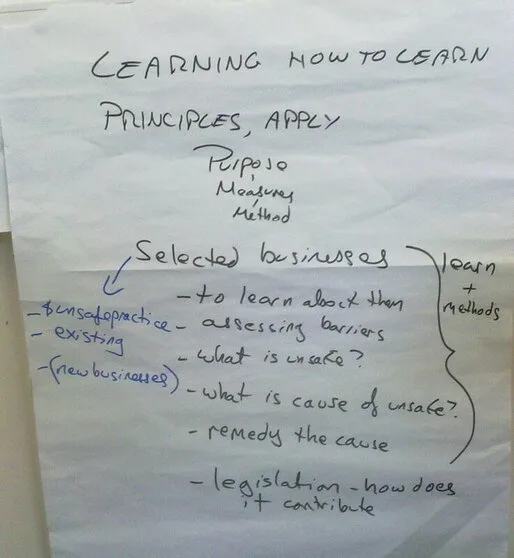 LEARNING HOW TO LEARN
PRINCIPLES, APPLY
Purpose
Measures
Method
Selected businesses
- to learn about them
- assessing barriers
- what is unsafe?
- what is cause of unsafe?
- remedy the cause
- legislation - how does
it contribute
learn
+
methods
- $unsafe practice
- existing
- (new businesses)